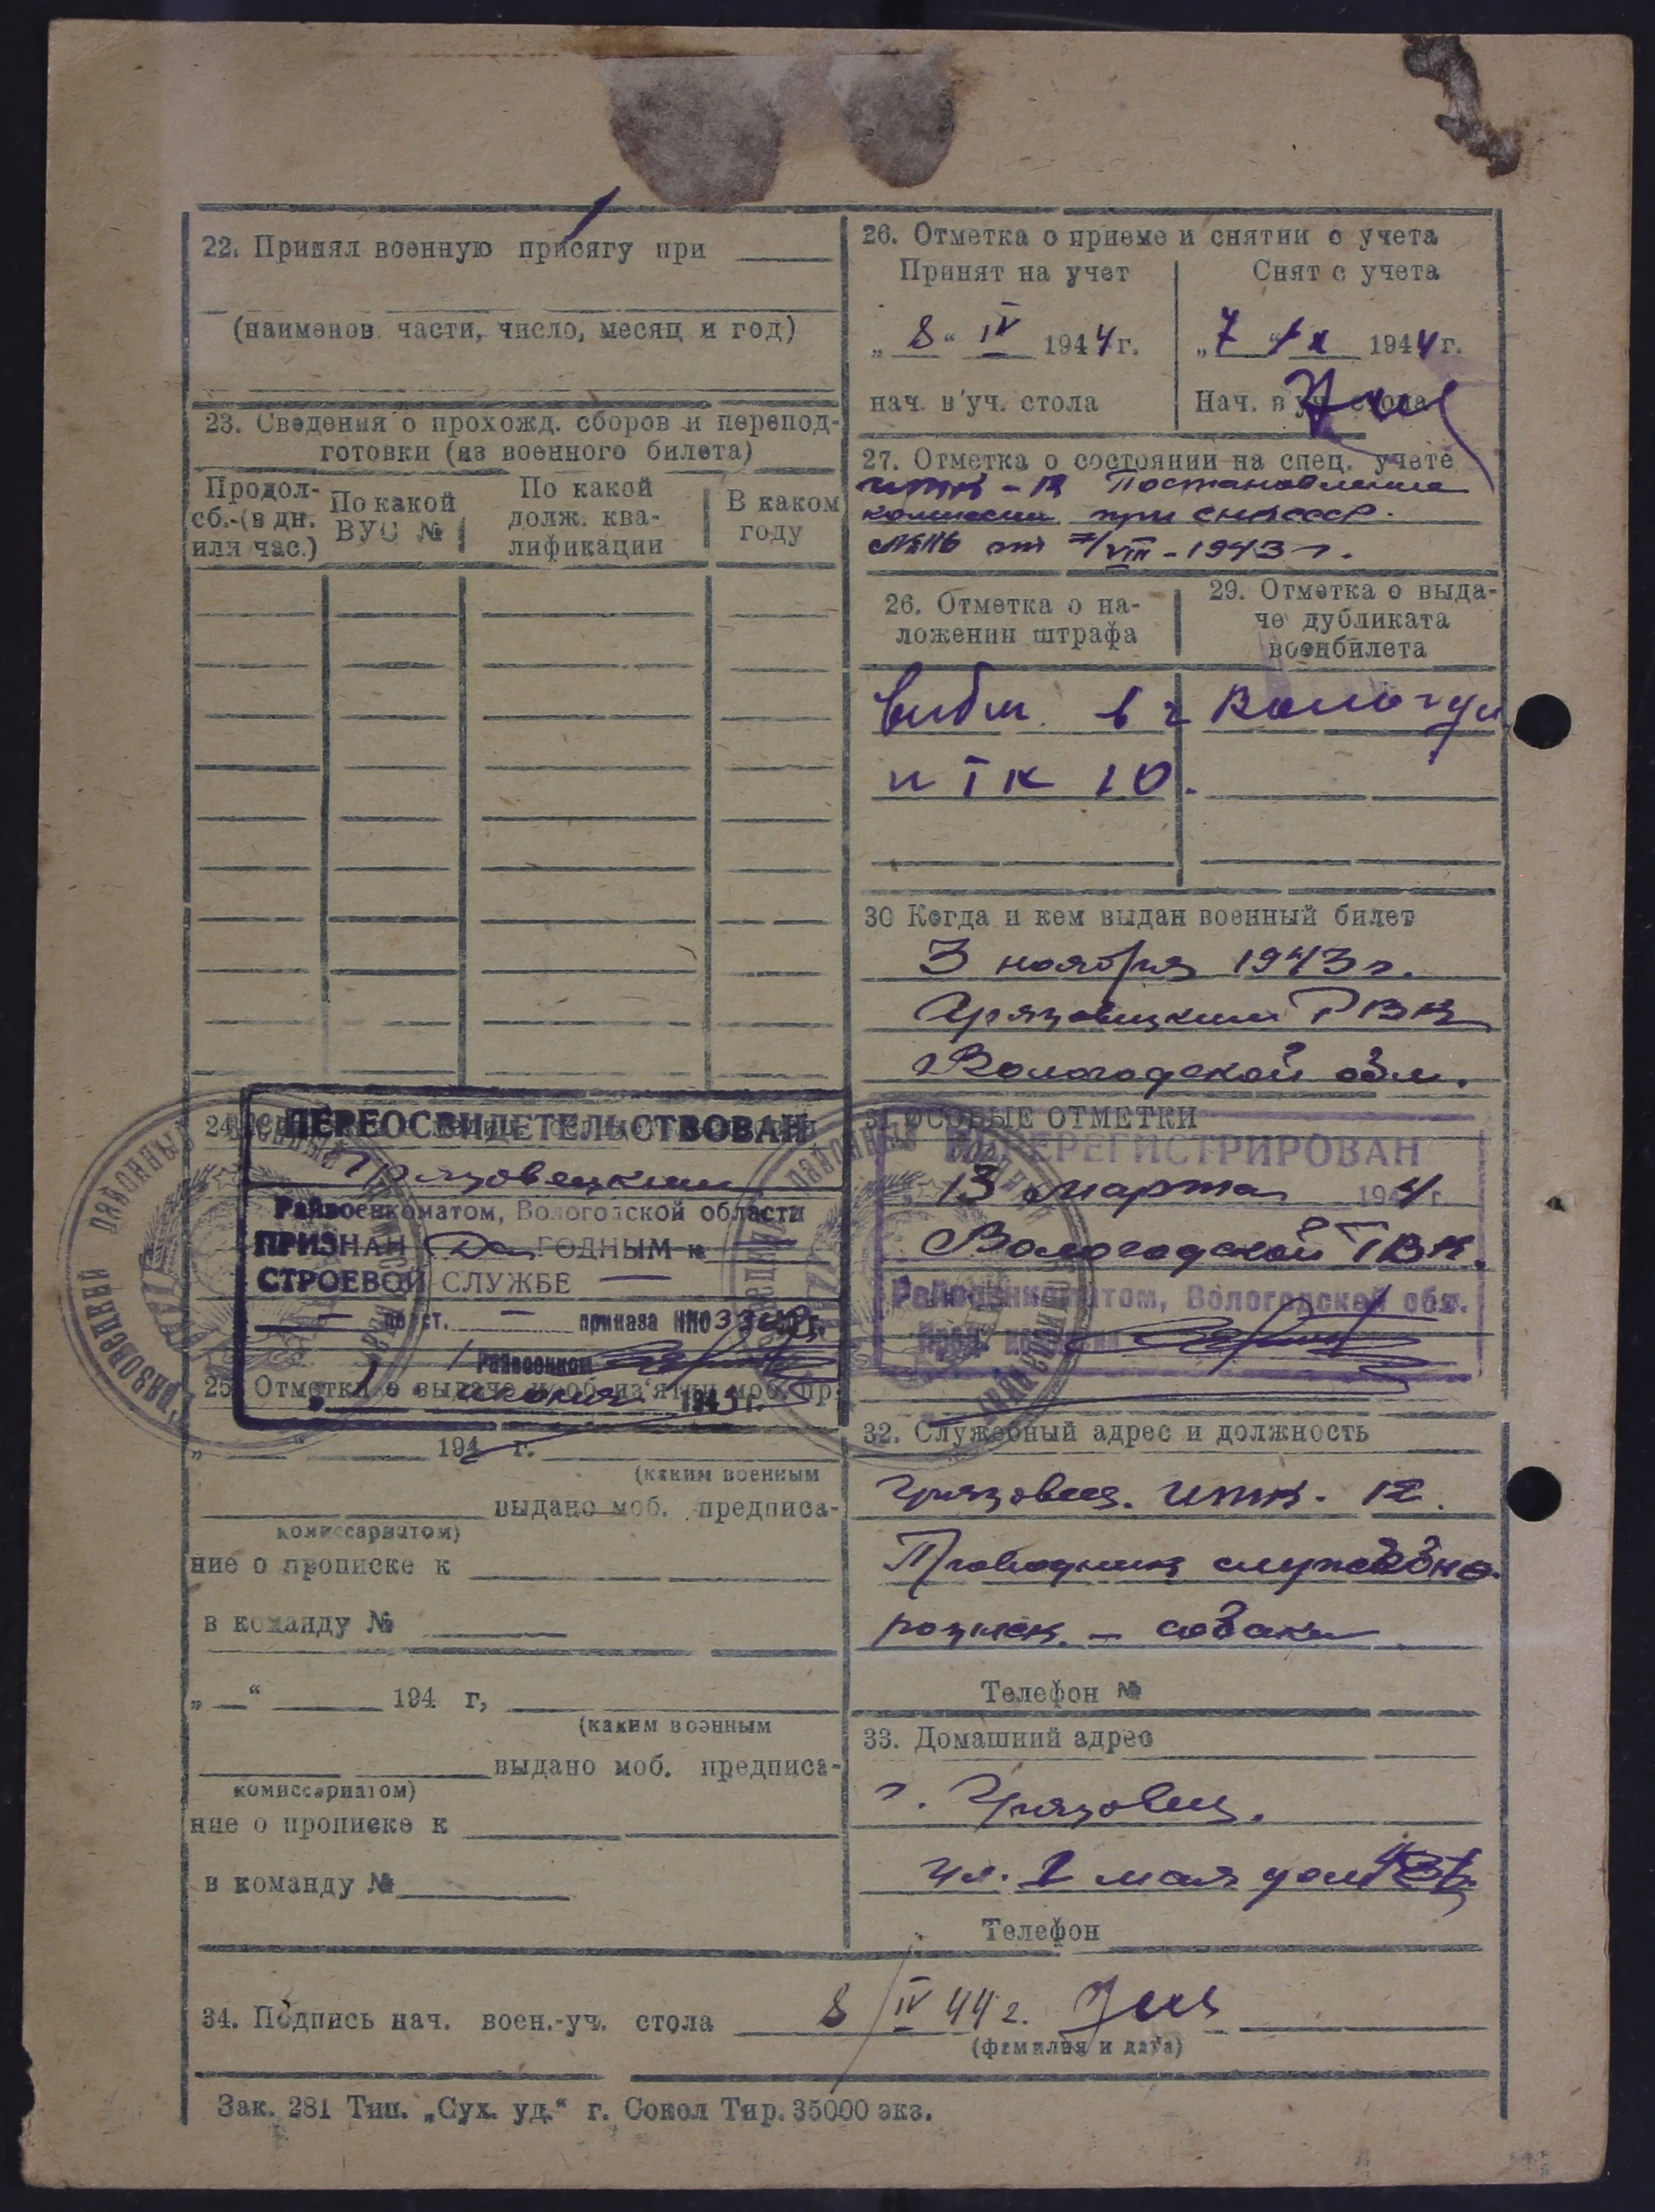 22. Принял военную присягу при
(наименов. части, число, месяц и год)
23. Сведения о прохожд. сборов и перепод-
готовки (из военного билета)
Продол-
сб.-(в дн.
или час.)
По какой
ВУС №
По какой
долж. ква-
лификации
В каком
году
24
ПЕРЕОСВИДЕТЕЛЬСТВОВАН
Грязовецким
Райвоенкоматом, Вологодской области
ПРИЗНАН ГОДНЫМ к
СТРОЕВОЙ СЛУЖБЕ
по ст. приказа НКО 336
Райвоенком
25. Отметки о выдаче и об из'ятии моб. пр.
194 г.
(каким военным
выдано моб. предписа-
комиссариатом)
ние о прописке к
в команду №
„ — “ 194 г,
(каким военным
выдано моб. предписа-
комиссариатом)
ние о прописке к
в команду №
26. Отметка о приеме и снятии с учета
Принят на учет
„ 8 “ IV 1944 г.
нач. в'уч. стола
Снят с учета
„ 7 “ IX 1944 г.
Нач. в'уч. стола
27. Отметка о состоянии на спец. учете
Постановление
комиссии при СНК СССР.
№ 116 от 7/VIII - 1943 г.
26. Отметка о на-
ложении штрафа
29. Отметка о выда-
че дубликата
военбилета
выбыл в г Вологду
ИТК 10.
30 Когда и кем выдан военный билет
3 ноября 1943 г.
Грязовецким РВК
Вологодской обл.
31. ОСОБЫЕ ОТМЕТКИ
ПЕРЕРЕГИСТРИРОВАН
13 марта 1944 г.
Вологодской ГВК.
Райвоенкоматом, Вологодской обл.
32. Служебный адрес и должность
Грязовец. ИТК.
Проводник служебно.
розыск. - собаки
Телефон №
33. Домашний адрес
г. Грязовец.
ул. 1 мая дом
Телефон
34. Подпись нач. воен.-уч. стола 8/IV 44 г.
(фамилия и дата)
Зак. 281 Тип. „Сух. уд.“ г. Сокол Тир. 35000 экз.